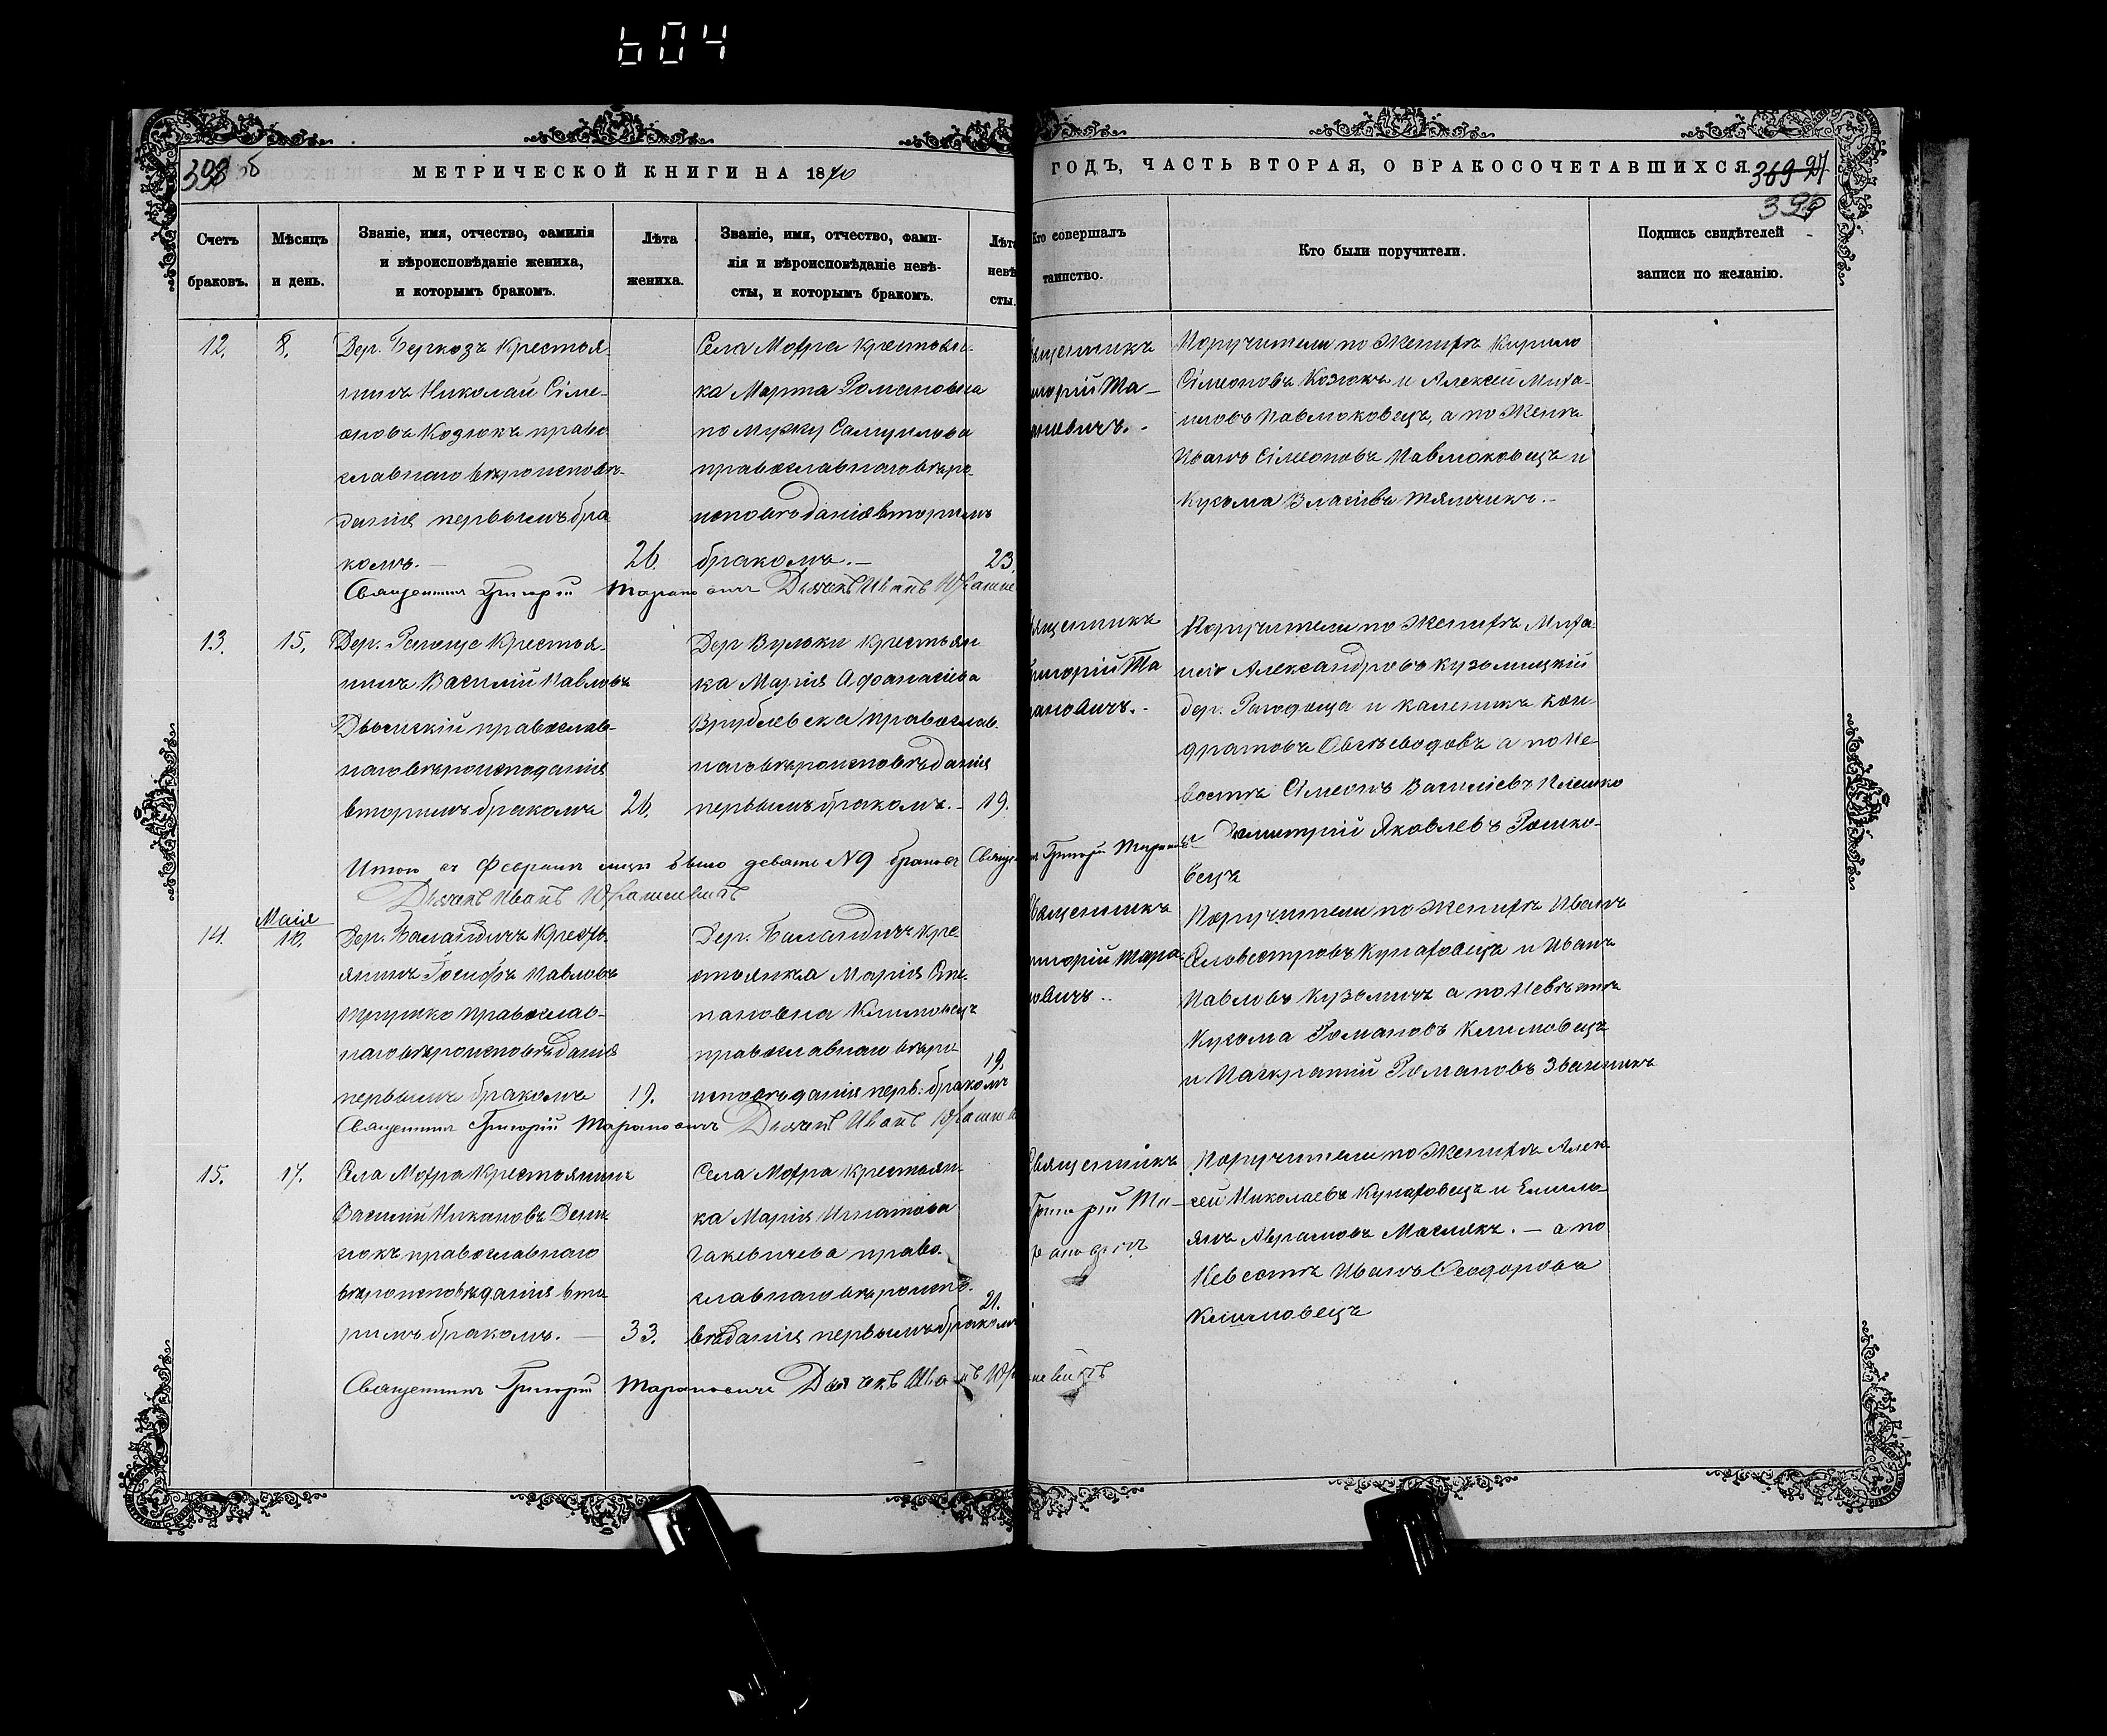 604
398 об
МЕТРИЧЕСКОЙ КНИГИ НА 1870
ГОДЪ, ЧАСТЬ ВТОРАЯ, О БРАКОСОЧЕТАВШИХСЯ.
369 97
399
Счетъ браковъ.
Мѣсяцъ и день.
Званіе, имя, отчество, фамилія
и вѣроисповѣданіе жениха,
и которымъ бракомъ.
Лѣта жениха.
Званіе, имя, отчество, фами-
лія и вѣроисповѣданіе невѣ-
сты, и которымъ бракомъ.
Лѣта невѣ-
сты.
Кто совершалъ
таинство.
Кто были поручители.
Подпись свидѣтелей
записи по желанію.
12.
8.
Дер. Беркозъ Крестья-
нинъ Николай Сіме-
оновъ Козюкъ право
славнаго вѣроисповѣ-
данія первымъ бра
комъ.
26.
Села Мохра крестьян-
ка Марта Романовна
по мужу Самуилова
православнаго вѣро-
исповѣданія вторимъ
бракомъ. —
23.
Священникъ
Григорій Та-
рановичъ. -
Поручители по Женихѣ Кирило
Сімеоновъ Козюкъ и Алексей Миха-
иловъ Павлюковецъ, а по Жене
Иванъ Сімеоновъ Павлюковецъ и
Кузьма Власівъ Тялчикъ. -
Священникъ Григорій Тарановичъ Дьячекъ Иванъ
13.
15.
Дер. Крестья-
нинъ Василій Павловъ
православ-
наго вѣроисподанія
вторимъ бракомъ
26.
Дер Вульки крестьян
ка Марія Афанасіева
Врублевска православ.
наго вѣроисповѣданія
первымъ бракомъ. -
19.
Священникъ
Григорій Та
рановичъ. -
Поручители по Женихѣ Миха-
ило Александровъ Кузьмицкій
дер. и каленикъ Кон-
дратовъ а по Не-
вестѣ Сімеонъ Василіевъ
и Димитрій Яковлевъ Рошко-
вецъ
Итого въ Февралѣ мцѣ было девять №9 браковъ Священникъ Григорій Тарановичъ
Дьячекъ Иванъ
14.
Маія
10.
Дер. Баландичъ Кресть-
янинъ Іосифъ Павловъ
православ-
наго вѣроисповѣданія
первымъ бракомъ
19.
Дер. Баландичъ Кре-
стьянка Марія Сте-
пановна Климовецъ
православнаго вѣро
исповѣданія перв: бракомъ
19.
Священникъ
Григорій Тара-
новичъ ..
Поручители по Женихѣ Иванъ
Селвестровъ Купаховецъ и Иванъ
Павловъ Кузьмичъ а по Невѣсте
Кузьма Романовъ Климовецъ
и Панкратій Романовъ
Священникъ Григорій Тарановичъ Дьячекъ Иванъ
15.
17.
Села Мохра Крестьянинъ
Василій Никоновъ Деми-
нюкъ православнаго
вѣроисповѣданія вто
римъ бракомъ. —
33.
Села Мохра крестьян-
ка Марія Игнатова
право-
славнаго вѣроиспо-
вѣданія первымъ бракомъ
21.
Священникъ
Григорій Та-
рановичъ
Поручители по Женихѣ Алек
сей Николаевъ Купаховецъ и Емель-
янъ Аврамовъ Маслякъ. — а по
Невестѣ Иванъ Ѳеодоровъ
Климовецъ
Священникъ Григорій Тарановичъ Дьячекъ Иванъ